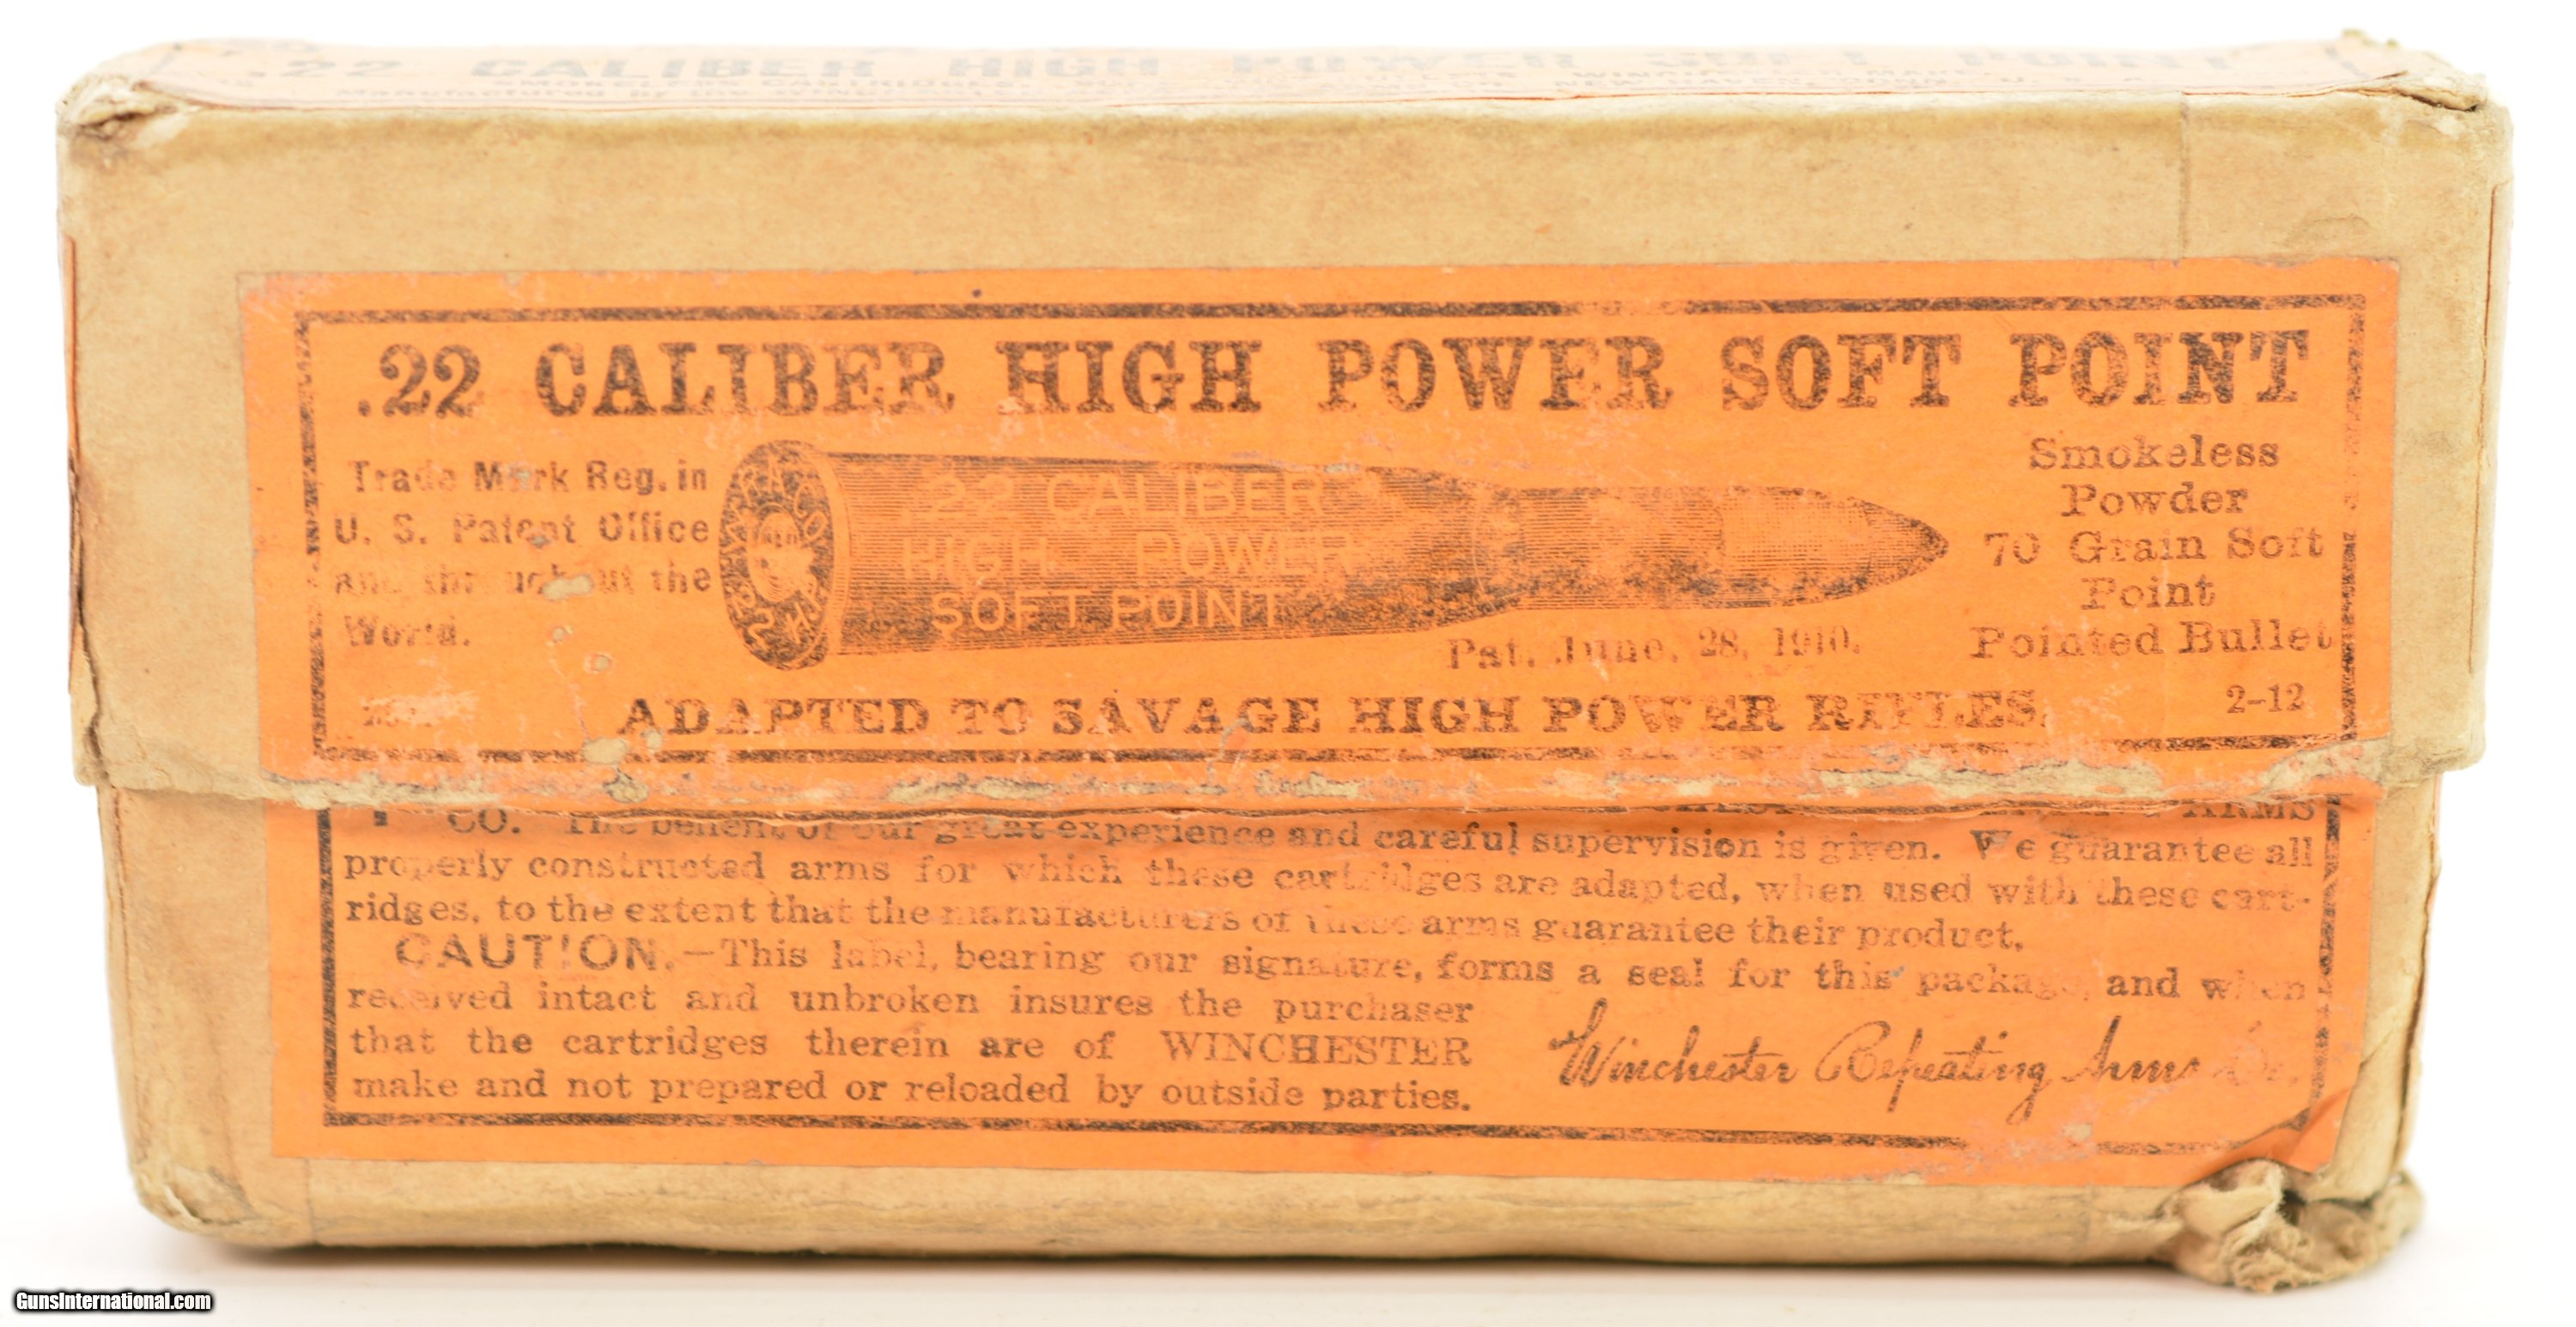 .22 CALIBER HIGH POWER SOFT POINT
.22 CALIBER HIGH POWER SOFT POINT
Trade Mark Reg. in
U. S. Patent Office
and throughout the
World.
SAVAGE
22 H.P.
22 CALIBER
HIGH POWER
SOFT POINT
Smokeless
Powder
70 Grain Soft
Point
Pointed Bullet
Pat. June, 28, 1910.
ADAPTED TO SAVAGE HIGH POWER RIFLES.
2-12
ARMS
CO. The benefit of our great experience and careful supervision is given. We guarantee all
properly constructed arms for which these cartridges are adapted, when used with these cart-
ridges, to the extent that the manufacturers of these arms guarantee their product.
CAUTION.—This label, bearing our signature, forms a seal for this package, and when
received intact and unbroken insures the purchaser
that the cartridges therein are of WINCHESTER
make and not prepared or reloaded by outside parties.
Winchester Repeating Arms Co.
GunsInternational.com